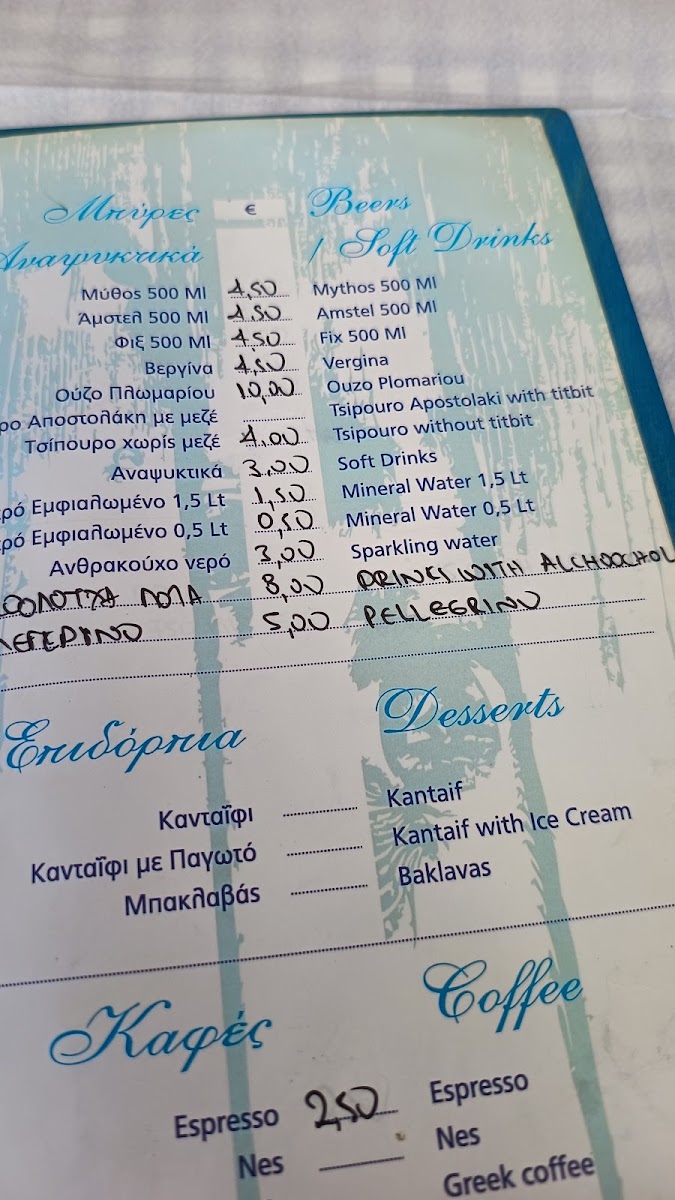 Μπύρες € Beers
Αναψυκτικά / Soft Drinks
Μύθος 500 Ml 4,50 Mythos 500 Ml
Άμστελ 500 Ml 4,50 Amstel 500 Ml
Φιξ 500 Ml 4,50 Fix 500 Ml
Βεργίνα 4,50 Vergina
Ούζο Πλωμαρίου 10,00 Ouzo Plomariou
ρο Αποστολάκη με μεζέ Tsipouro Apostolaki with titbit
Τσίπουρο χωρίς μεζέ 4,00 Tsipouro without titbit
Αναψυκτικά 3,00 Soft Drinks
ρό Εμφιαλωμένο 1,5 Lt 1,50 Mineral Water 1,5 Lt
ρό Εμφιαλωμένο 0,5 Lt 0,50 Mineral Water 0,5 Lt
Ανθρακούχο νερό 3,00 Sparkling water
ΠΟΤΑ 8,00 DRINKS WITH ALCHOOCHOL
5,00 PELLEGRINO
Επιδόρπια Desserts
Κανταΐφι Kantaif
Κανταΐφι με Παγωτό Kantaif with Ice Cream
Μπακλαβάς Baklavas
Καφές Coffee
Espresso 2,50 Espresso
Nes Nes
Greek coffee